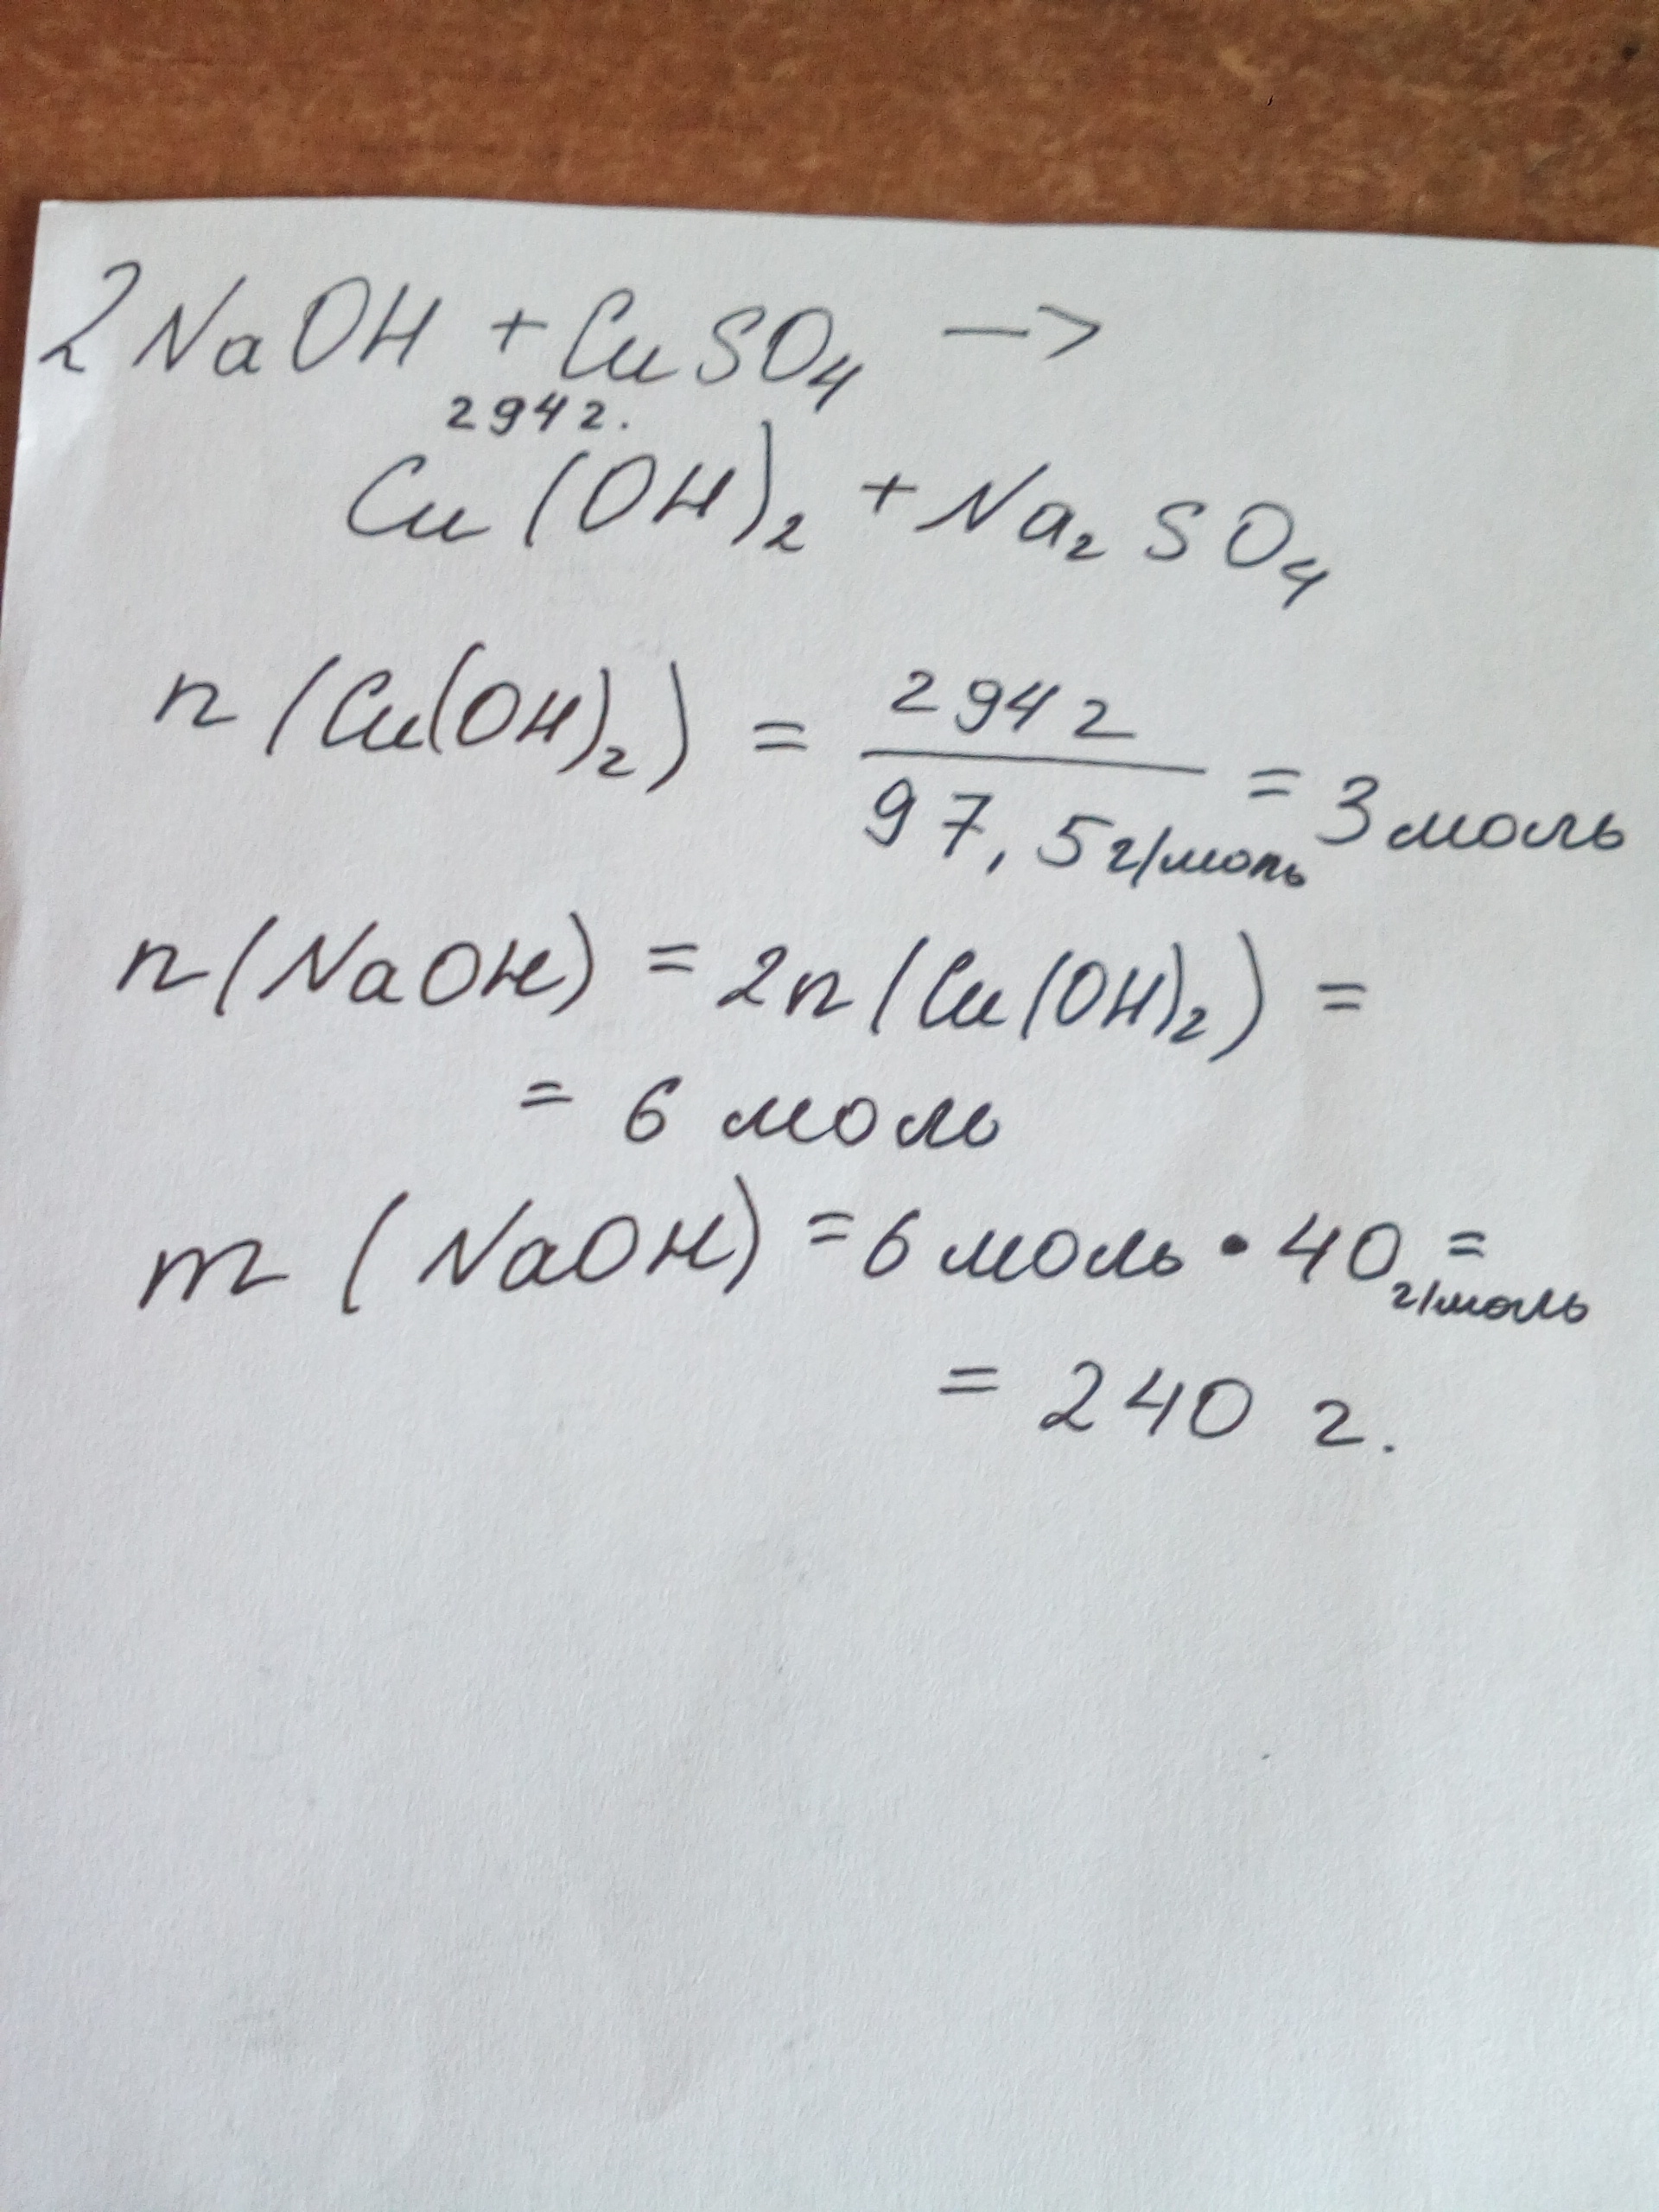 2NaOH + CuSO₄ —>
294 г.
Cu(OH)₂ + Na₂SO₄
n(Cu(OH)₂) = 294 г / 97,5 г/моль = 3 моль
n(NaOH) = 2n(Cu(OH)₂) =
= 6 моль
m(NaOH) = 6 моль • 40 г/моль =
= 240 г.